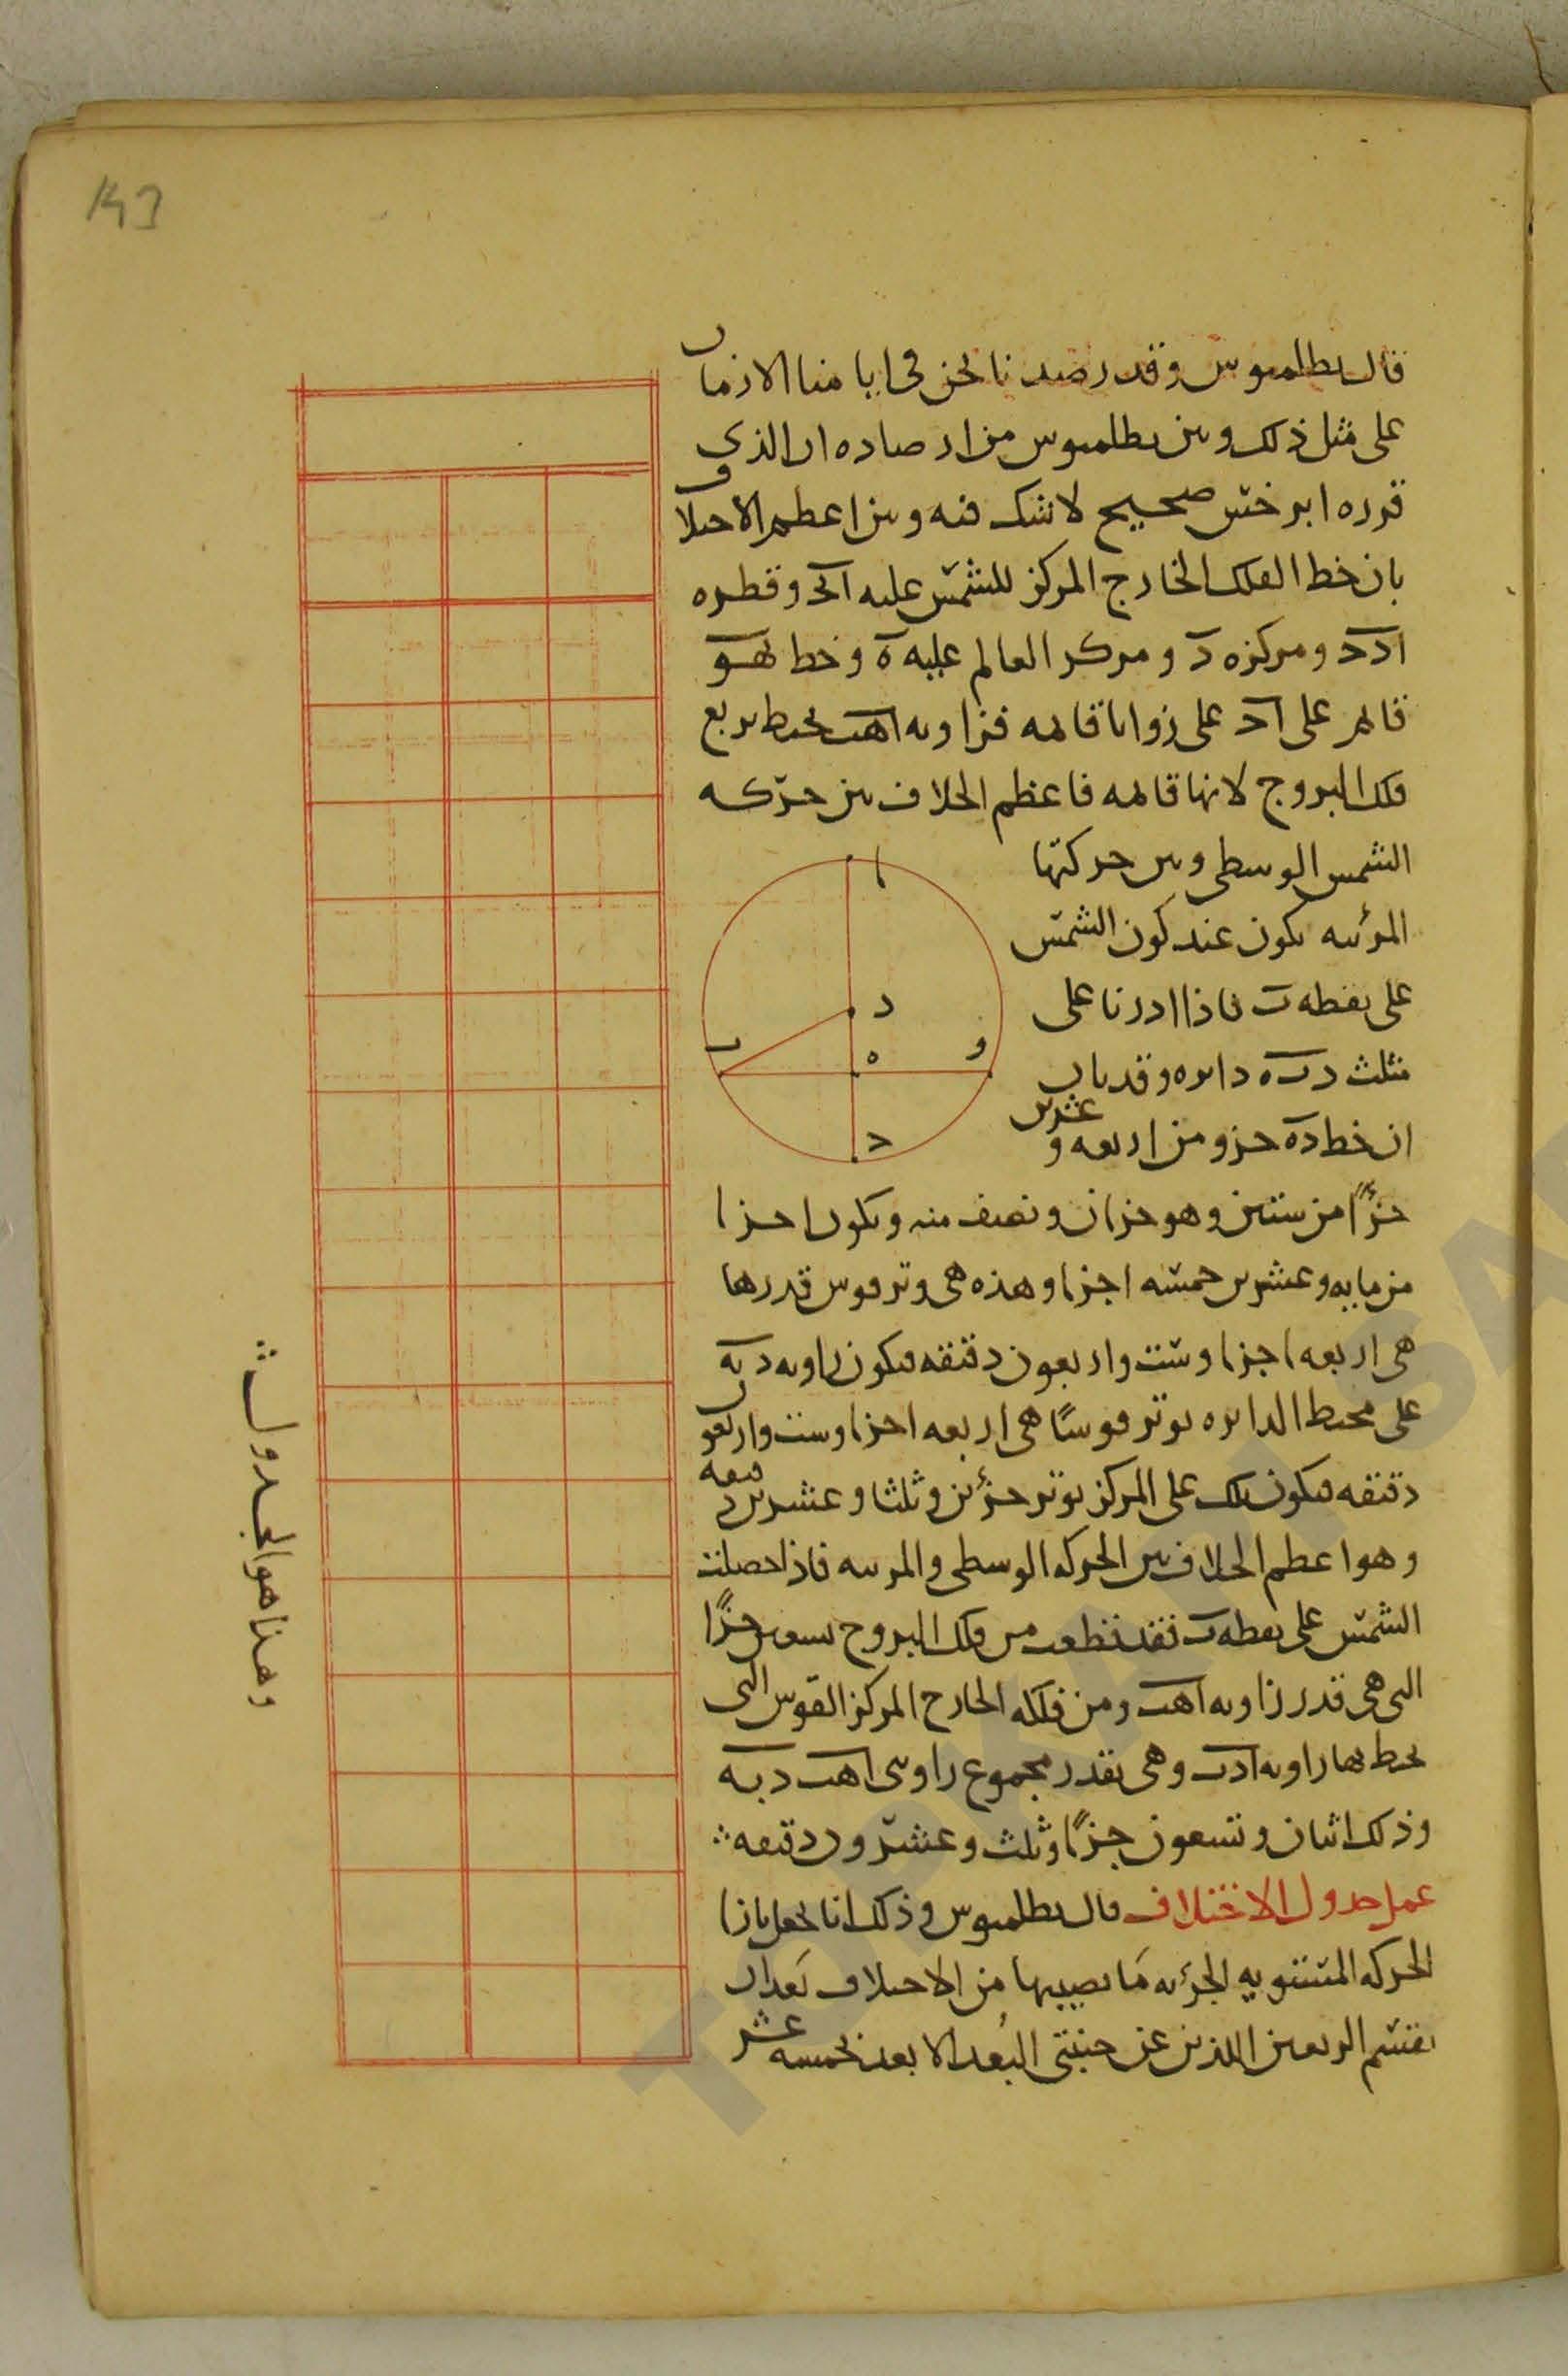 143
قال بطلميوس وقد رصدنا نحن في ايامنا الازمان
على مثل ذلك وبين بطلميوس من ارصاده ان الذي
قرره ابرخس صحيح لا شك فيه وبين اعظم الاختلاف
بان خط الفلك الخارج المركز للشمس عليه ا ب ج وقطره
ا د ج ومركزه د ومركز العالم عليه ه وخط ب ه و
قايم على ا ج على زوايا قايمه فزاويه ا ه ب تحيط بربع
فلك البروج لانها قايمه فاعظم الخلاف بين حركه
الشمس الوسطى وبين حركتها
المرئيه يكون عند كون الشمس
على نقطه ب فاذا ادرنا على
مثلث د ب ه دايره وقد بان
ان خط د ه جزو من اربعه وعشرين
جزًا من ستين وهو جزان ونصف منه ويكون اجزا
من مايه وعشرين خمسه اجزا وهذه هي وتر قوس قدرها
هي اربعه اجزا وست واربعون دقيقه فيكون زاويه د ب ه
على محيط الدايره يوتر قوسًا هي اربعه اجزا وست واربعون
دقيقه فيكون تلك على المركز يوتر جزئين وثلثا وعشرين دقيقه
وهو اعظم الخلاف بين الحركه الوسطى والمرئيه فاذا حصلت
الشمس على نقطه ب فقد قطعت من فلك البروج تسعين جزًا
التي هي قدر زاويه ا ه ب ومن فلكه الخارج المركز القوس التي
يحيط بها زاويه ا د ب وهي بقدر مجموع زاويتي ا ه ب د ب ه
وذلك اثنان وتسعون جزًا وثلث وعشرون دقيقه ∴
عمل جدول الاختلاف قال بطلميوس وذلك انا نجعل بازا
الحركه المستويه الجزئيه ما يصيبها من الاختلاف بعد ان
نقسم الربعين اللذين عن جنبتي البُعد الابعد بخمسه عشر
ا
د
ه
ب
و
ج
وهذا هو الجدول ∴
TOPKAPI SA